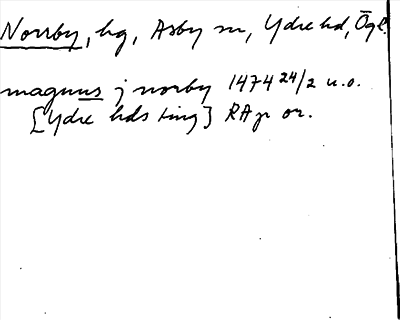 Norrby, hg, Asby sn, Ydre hd, Ögl.
magnus j norby 1474 24/2 u.o.
[Ydre hds ting] RAp or.